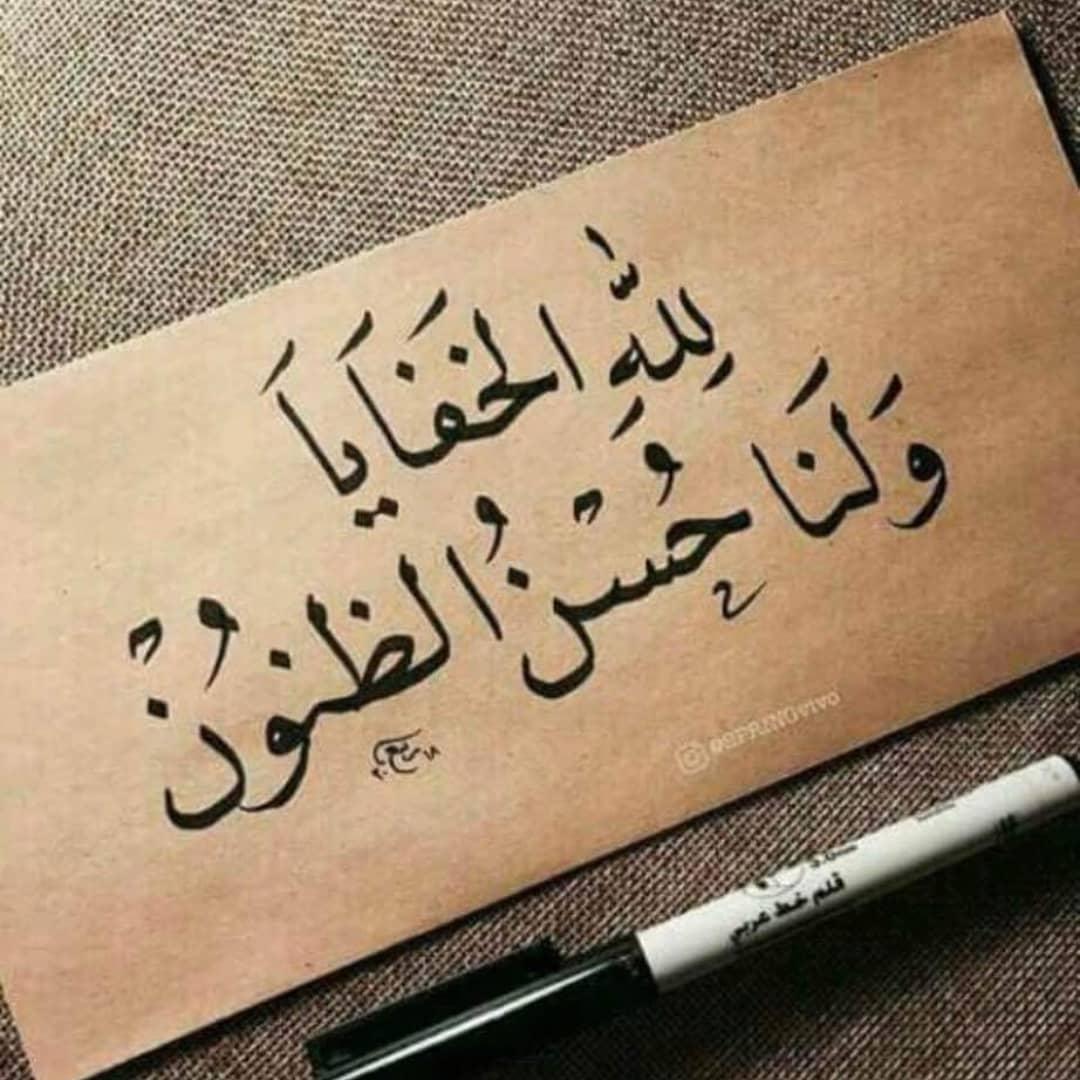 لِلّٰهِ الخَفَايَا
وَلَنَا حُسْنُ الظنُونْ
ربيع
@SPRINGVIVO
قلم خط عربي